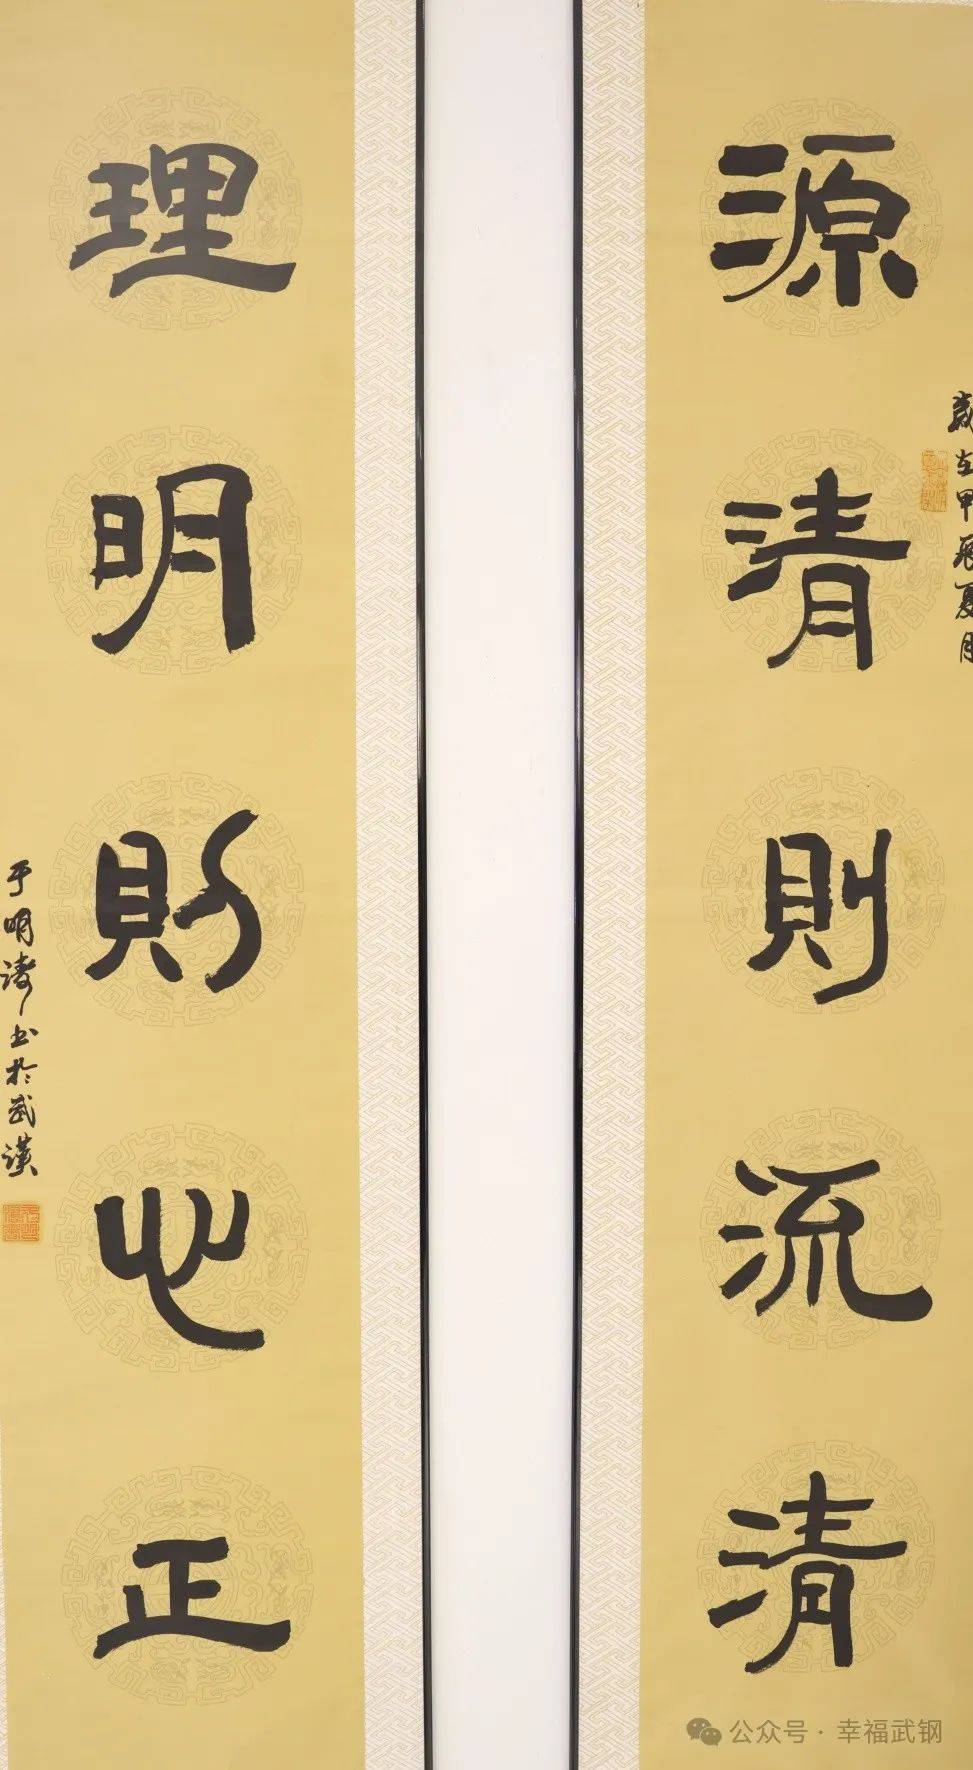 源清則流清
歲在甲辰夏月
理明則心正
于明涛书於武漢
公众号·幸福武钢